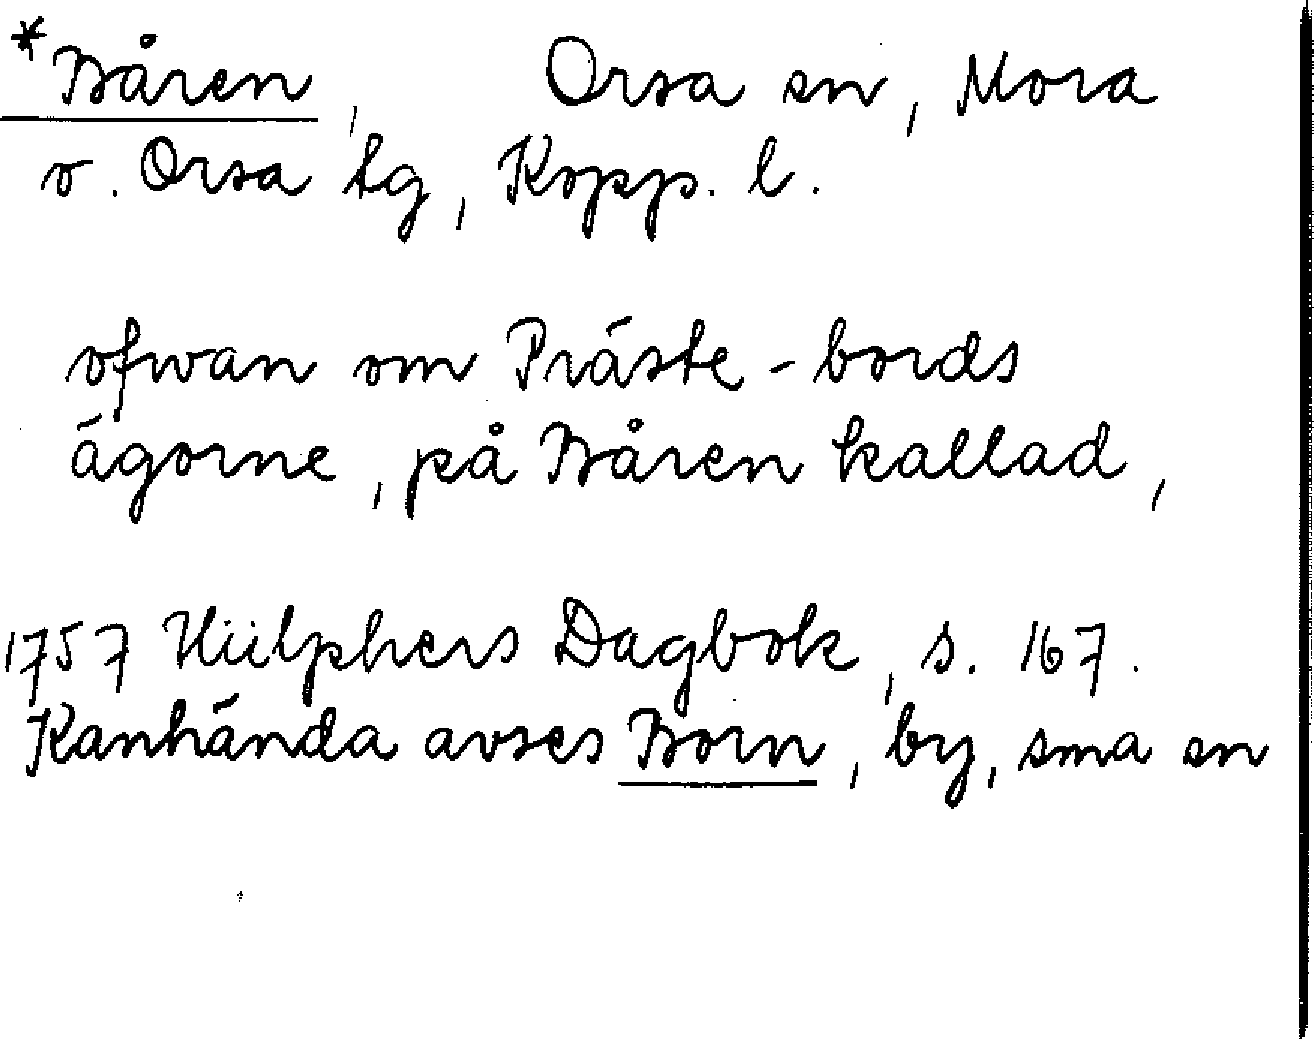 *Båren, Orsa sn, Mora
o. Orsa tg, Kopp. l.
ofwan om Präste-bords
ägorne, på Båren kallad,
1757 Hülphers Dagbok, s. 167.
Kanhända avses Born, by, sma sn